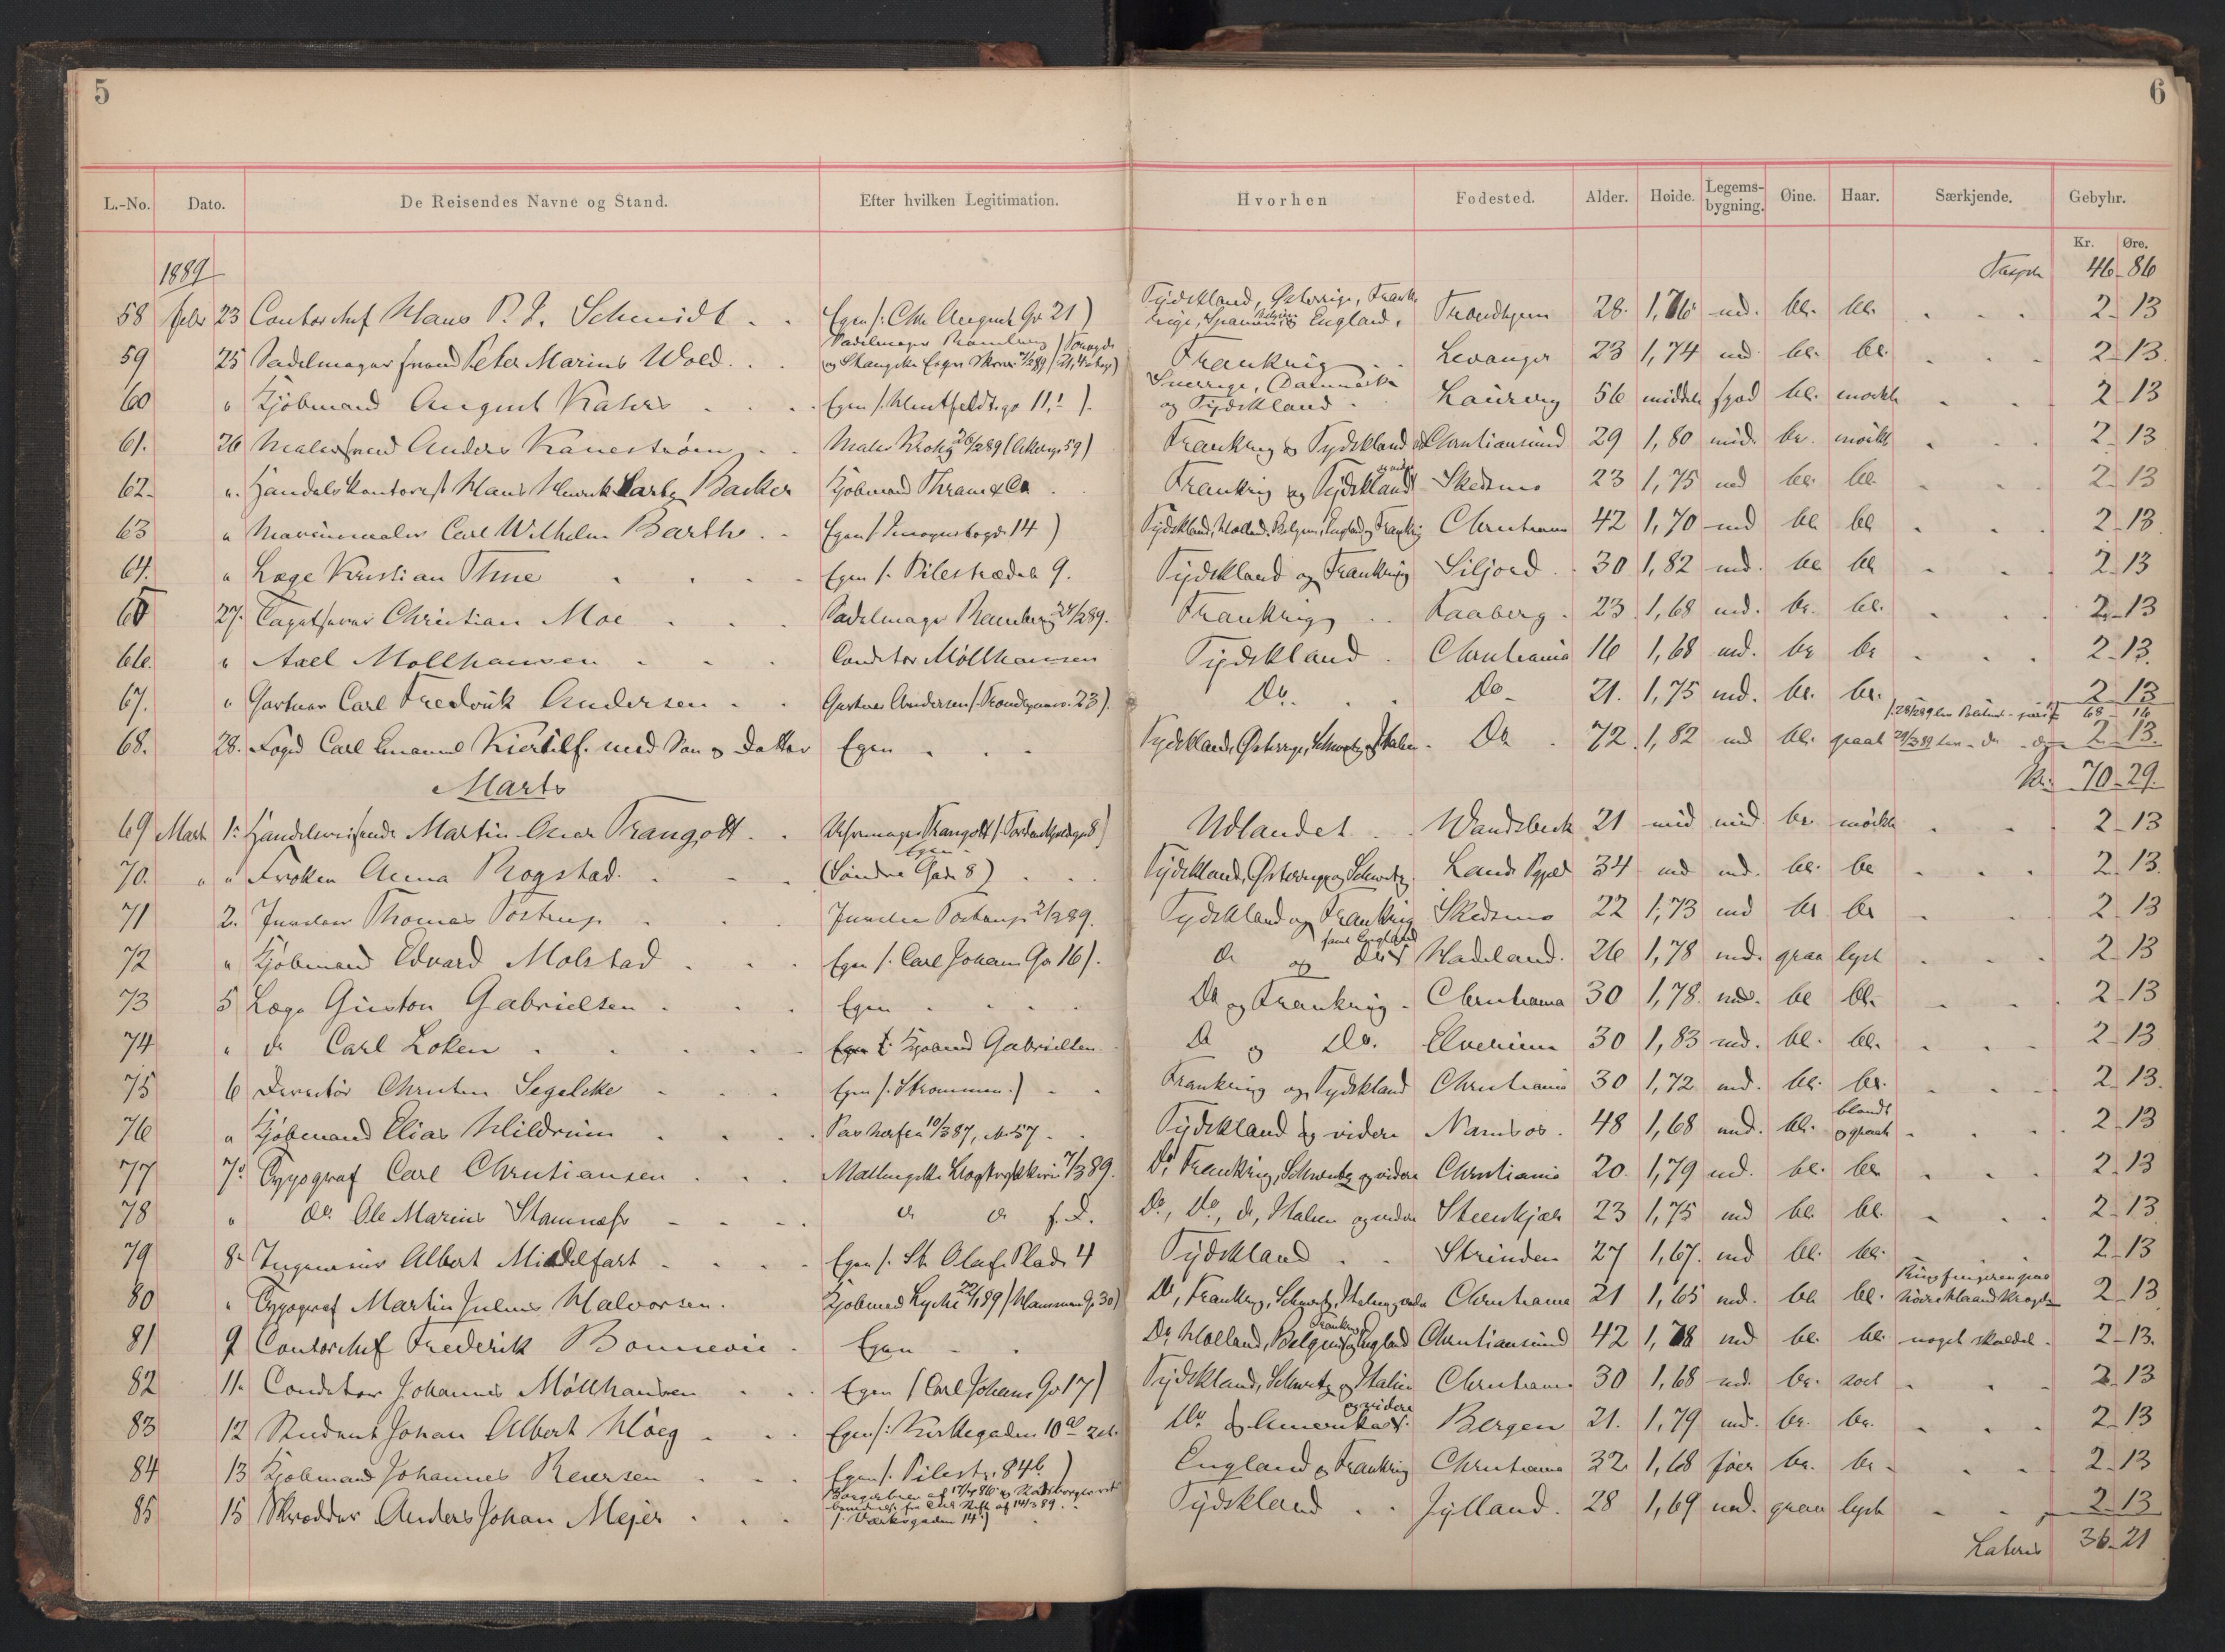 5
6
L.-No. Dato. De Reisendes Navne og Stand. Efter hvilken Legitimation. Hvorhen Fødested. Alder. Høide. Legems-bygning. Øine. Haar. Særkjende. Gebyhr.
Kr. Øre.
1889 46-86
58 febr 23 Contorchef Hans P. J. Schmidt Egen (: Chr Augusts Gd 21) Tydskland, Østerrige, Frankrige, Spanien, England. Trondhjem 28. 1,76 md. bl. bl. 2-13
59 25 Sadelmagersvend Peter Marius Wold Sadelmager Ramberg Frankrig Levanger 23 1,74 md bl. bl. 2-13
60 " Kjøbmand August Kahrs Egen (: Huitfeldtsgd 11.) Sverrige, Danmark og Tydskland Laurvig 56 middels spæd bl. mørkt 2-13
61. 26 Malersvend Anders Kanestrøm Maler Krohg 26/2 89 (Akersg. 59) Frankrig og Tydskland Christiansund 29 1,80 mid. br. mørkt 2-13
62. " Handelskontorist Hans Henrik Backer Kjøbmand Thrane & Co Frankrig og Tydskland Skedsmo 23 1,75 md bl. bl. 2-13
63 " Marinemaler Carl Wilhelm Barth Egen (14) Tydskland, Holland, Belgien, England og Frankrig Christiania 42 1,70 md bl bl 2-13
64. " Læge Kristian Thue Egen (: Pilestrædet 9. Tydskland og Frankrig Siljord 30 1,82 md. bl bl 2-13
65 27. Tapetserer Christian Moe Sadelmager Ramberg 89. Frankrig Faaberg 23 1,68 md. br. bl. 2-13
66. " Axel Møllhausen Conditor Møllhausen Tydskland Christiania 16 1,68 md. br br 2-13
67. " Gartner Carl Fredrik Andersen Gartner Andersen (: Trondhjemsv. 23). Do. Do 21. 1,75 md. bl. br. 2 13
68 - 16
68. 28. Foged Carl Emanuel Kierulf med Søn og Datter Egen Tydskland, Østerrige, Schweitz og Italien Do 72. 1,82 md bl. graat 2-13.
Marts Kr. 70-29.
69 Marts 1. Handelsreisende Martin Oscar Traugott Traugott (: Tordenskjoldsgd 8) Udlandet Wandsbeck 21 mid mid br. mørkt 2-13
70. " " Frøken Anna Rogstad Egen (Søndre Gade 8) Tydskland, Østerrige og Schweitz Lands 34 md md. bl. bl 2-13
71 2. Juveler Thomas Tostrup Juveler Tostrup 2/3 89. Tydskland og Frankrig Skedsmo 22 1,73 md bl bl 2-13
72 " Kjøbmand Edvard Molstad Egen (: Carl Johans Gd 16). do og do samt England Hadeland. 26 1,78 md. graa lyst 2-13
73 5 Læge Gustav Gabrielsen Egen Do og Frankrig Christiania 30 1,78. md. bl bl. 2-13
74 " do Carl Løken Kjøbmd Gabrielsen Do og Do. Elverum 30 1,83 md. bl. bl. 2-13
75 6 Direktør Christen Segelcke Egen (: Strømmen :) Frankrig og Tydskland Christiania 30 1,72 md. bl. br. 2-13.
76 " Kjøbmand Elias Hildrum Pas herfra 10/3 87, No 57 Tydskland og videre Namsos. 48 1,68 md. bl. blandt graat 2-13
77 7. Typograf Carl Christiansen Mallingske Bogtrykkeri 7/3 89. Do, Frankrig, Schweitz og videre Christiania 20. 1,79 md. bl. br 2-13
78 " do. Ole Marius Stamnæs do do s. D. Do, Do, do, Italien og videre Steenkjær 23 1,75 md bl. bl. 2-13
79 8. Ingeniør Albert Middelfart Egen (: St. Olafs Plads 4 Tydskland Strinden 27 1,67. md bl. bl. 2-13
80 " Typograf Martin Julius Halvorsen. Kjøbmand Lyche 89 (Hammersg. 30) Do, Frankrig, Schweitz, Italien og videre Christiania 21 1,65 md. bl. bl. Ringfingeren paa høire Haand 2-13
81 9 Contorchef Frederik Bonnevie Egen Do, Holland, Belgien, Frankrig og England Christiansund 42 1,78 md bl. bl. noget skaldet. 2-13.
82 11. Conditor Johannes Møllhausen Egen (Carl Johans Gd 17) Tydskland, Schweitz og Italien Christiania 30 1,68 md. br. sort 2-13
83 12 Student Johan Albert Høeg Egen (: Kirkegaden 10 Do og Amerika og videre Bergen 21. 1,79 md. br. br. 2-13
84 13 Kjøbmand Johannes Reiersen Egen (: Pilestr. 84 b.) England og Frankrig Christiania 32 1,68 før br. br. 2-13
85 15 Skrædder Anders Johan Mejer Borgerbrev af 14/3 89. (: Værksgaden 14) Tydskland Jylland. 28 1,69 md. graa lyst 2-13
Lateris 36-21